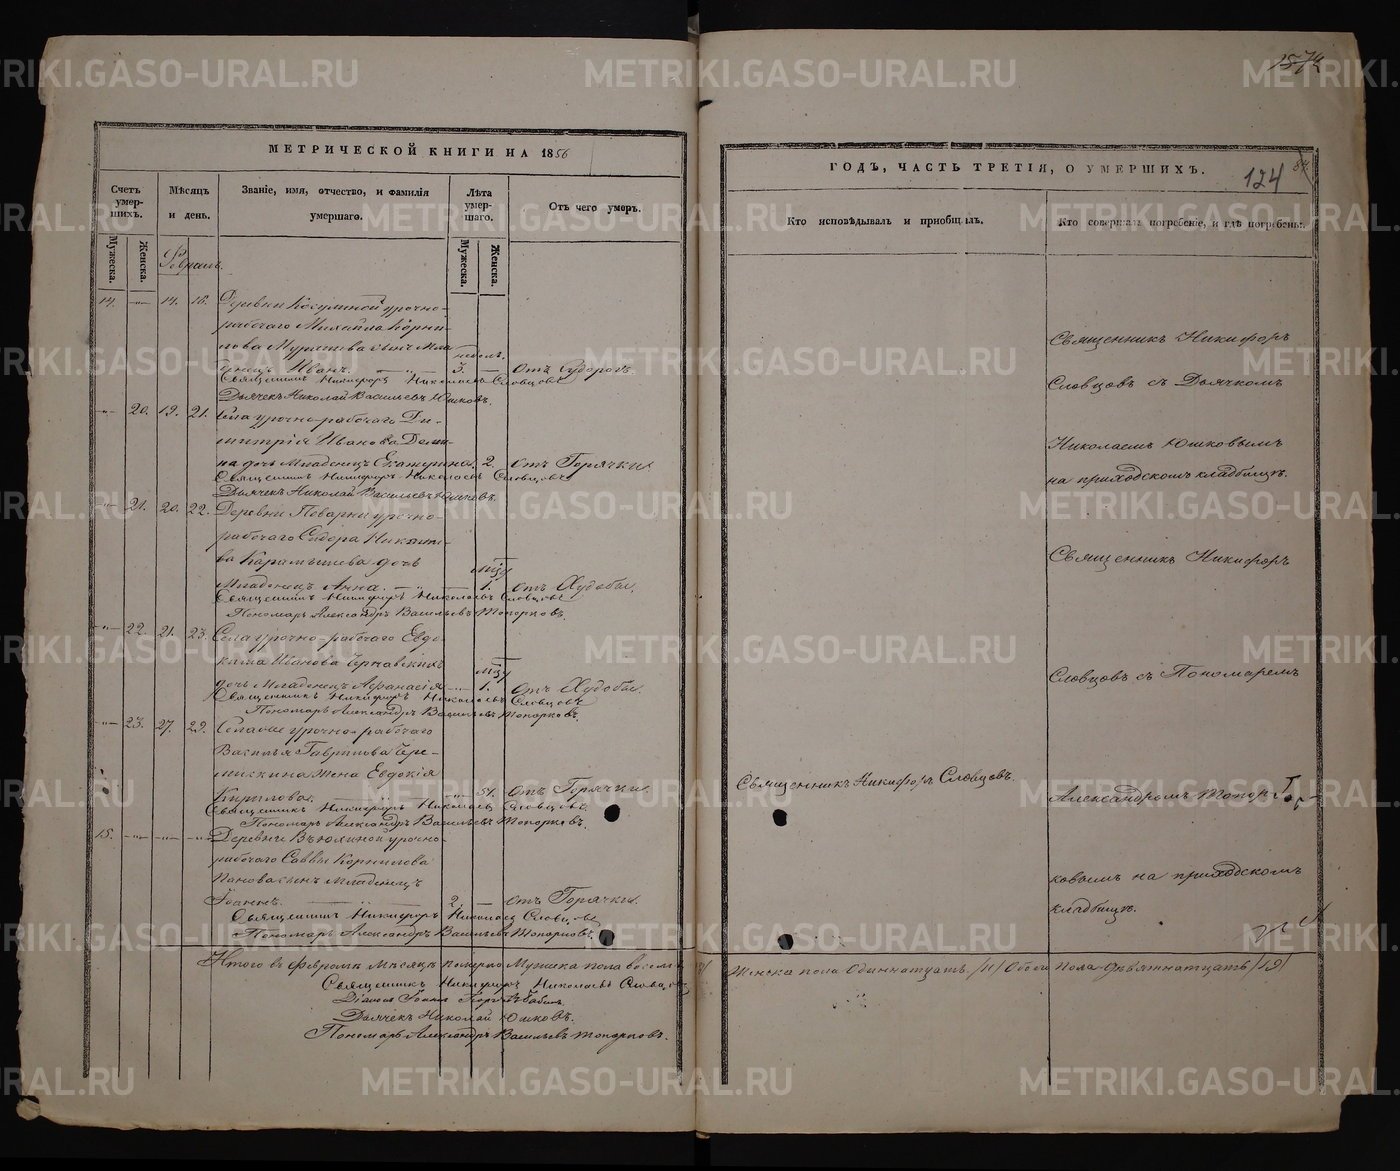 МЕТРИЧЕСКОЙ КНИГИ НА 1856
Счетъ умер- шихъ.
Мѣсяцъ и день.
Званіе, имя, отчество, и фамилія умершаго.
Лѣта умер- шаго.
Отъ чего умеръ.
Мужеска.
Женска.
Мужеска.
Женска.
Февраль.
14. — 14. 16. Деревни урочно-
рабочаго Михайла Корни-
лова сынъ Мла-
недѣл.
денецъ Иванъ. 3. — отъ
Священникъ Никифоръ Николаевъ Словцовъ
Дьячекъ Николай Васильевъ Юшковъ.
20. 19. 21. Села урочно-рабочаго Ди-
митрія Иванова Деми-
на дочь Младенецъ Екатерина. 2. отъ Горячки
Священникъ Никифоръ Николаевъ Словцовъ
Дьячекъ Николай Васильевъ Юшковъ.
21. 20. 22. Деревни Поварни урочно-
рабочаго Сидора Никити-
ва Карамышева дочь
Младенецъ Анна. 1. отъ Худобы.
Священникъ Никифоръ Николаевъ Словцовъ
Пономарь Александръ Васильевъ Топорковъ.
22. 21. 23. Села урочно-рабочаго Евдо-
кима Иванова
дочь Младенецъ Афанасія 1. отъ Худобы.
Священникъ Никифоръ Николаевъ Словцовъ
Пономарь Александръ Васильевъ Топорковъ.
23. 27. 29. урочно-рабочаго
Василья Гаврилова Чере-
мискина жена Евдокія
Кирилова. 51. отъ Горячки.
Священникъ Никифоръ Николаевъ Словцовъ
Пономарь Александръ Васильевъ Топорковъ.
15. Деревни Вьюхиной урочно-
рабочаго Саввы Корнилова
Панова сынъ младенецъ
Іоаннъ. 2. — отъ Горячки.
Священникъ Никифоръ Николаевъ Словцовъ
Пономарь Александръ Васильевъ Топорковъ.
Итого въ Февралѣ Мѣсяцѣ померло Мужска пола восемь
Священникъ Никифоръ Николаевъ Словцовъ
Діаконъ Іоаннъ Бабинъ.
Дьячекъ Николай Юшковъ.
Пономарь Александръ Васильевъ Топорковъ.
ГОДЪ, ЧАСТЬ ТРЕТІЯ, О УМЕРШИХЪ.
124
Кто исповѣдывалъ и пріобщалъ.
Кто совершалъ погребеніе, и гдѣ погребены.
Священникъ Никифоръ
Словцовъ съ Дьячкомъ
Николаемъ Юшковымъ
на приходскомъ кладбищѣ.
Священникъ Никифоръ
Словцовъ съ Пономаремъ
Священникъ Никифоръ Словцовъ.
Александромъ Топор-
ковымъ на приходскомъ
кладбищѣ.
Женска пола Одиннатцать /11/ Обоего Пола Девятнатцать /19/
METRIKI.GASO-URAL.RU